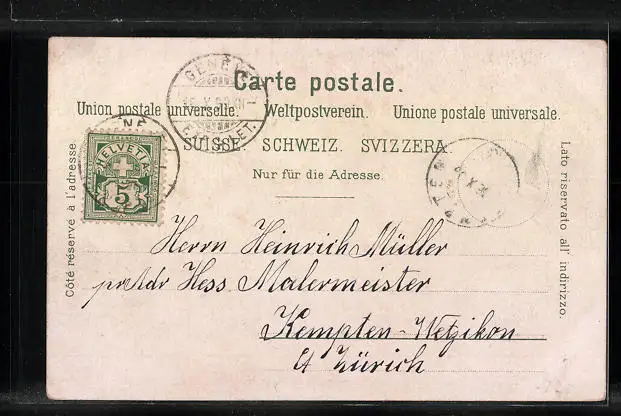 Carte postale.
Union postale universelle. Weltpostverein. Unione postale universale.
SUISSE. SCHWEIZ. SVIZZERA.
Nur für die Adresse.
Côté réservé à l'adresse.
Lato riservato all' indirizzo.
HELVETIA
5
GENÈVE
Herrn Heinrich Müller
pr. Adr Hess Malermeister
Kempten-Wetzikon
Ct Zürich